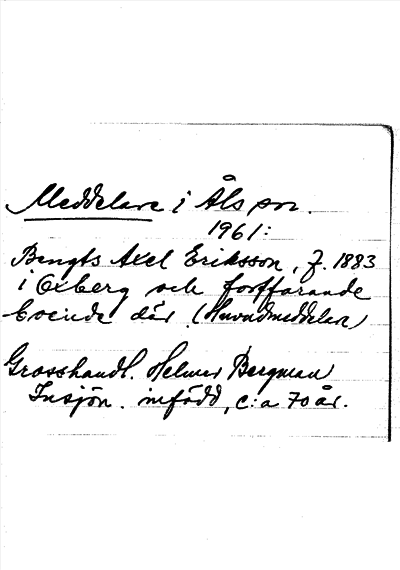 Meddelare i Åls sn.
1961:
Bengts Axel Eriksson, f. 1883
i Oxberg och fortfarande
boende där. (Huvudmeddelare)
Grosshandl. Helmer Bergman
Insjön. infödd, c:a 70 år.